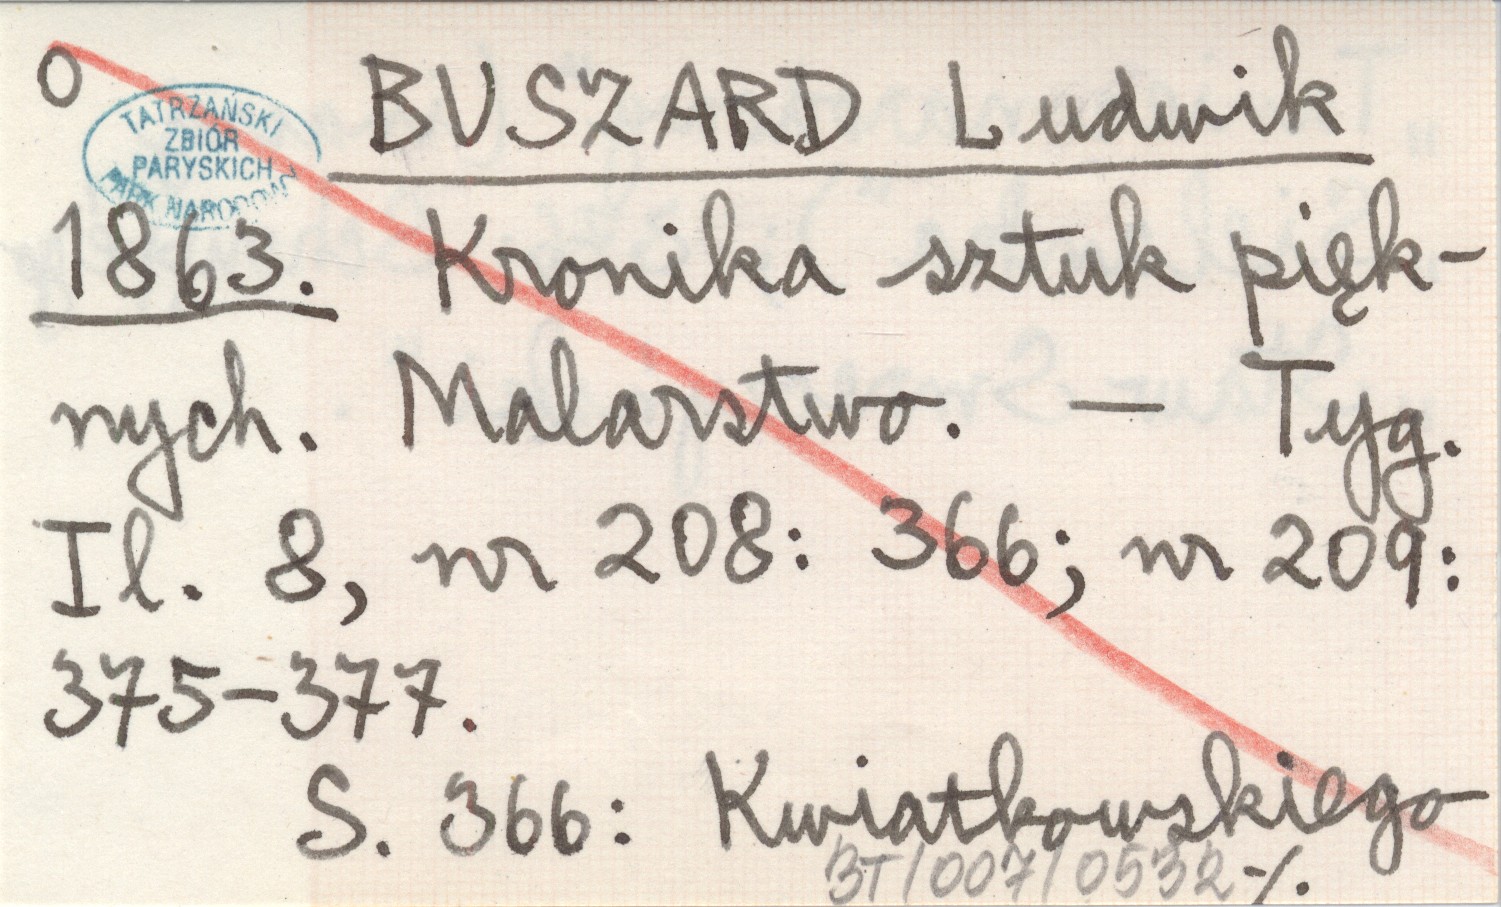 O
TATRZAŃSKI
ZBIÓR
PARYSKICH
PARK NARODOWY
BUSZARD Ludwik
1863. Kronika sztuk pięk-
nych. Malarstwo. — Tyg.
Il. 8, nr 208: 366; nr 209:
375-377.
S. 366: Kwiatkowskiego
BT/007/0532 -/.